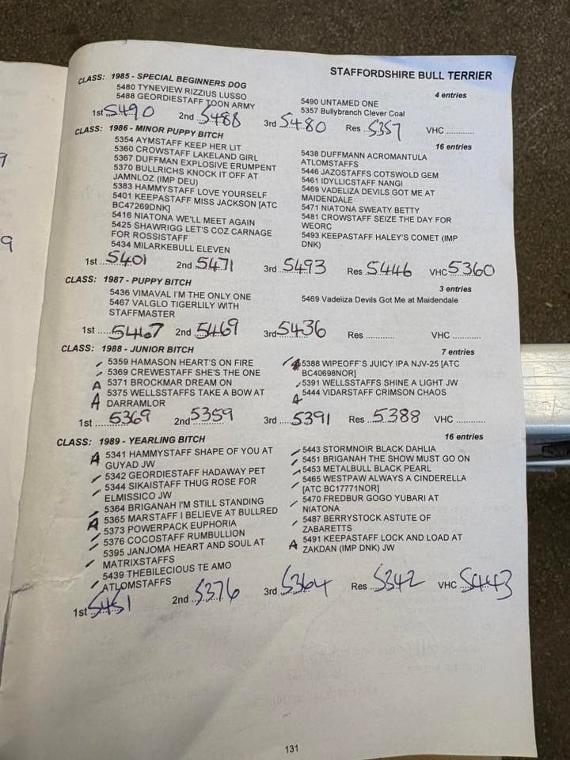 STAFFORDSHIRE BULL TERRIER
CLASS: 1985 - SPECIAL BEGINNERS DOG
4 entries
5480 TYNEVIEW RIZZIUS LUSSO
5488 GEORDIESTAFF TOON ARMY
5490 UNTAMED ONE
5357 Bullybranch Clever Coal
1st 5490 2nd 5488 3rd 5480 Res 5357 VHC
CLASS: 1986 - MINOR PUPPY BITCH
16 entries
5354 AYMSTAFF KEEP HER LIT
5360 CROWSTAFF LAKELAND GIRL
5367 DUFFMAN EXPLOSIVE ERUMPENT
5370 BULLRICHS KNOCK IT OFF AT
JAMNLOZ (IMP DEU)
5383 HAMMYSTAFF LOVE YOURSELF
5401 KEEPASTAFF MISS JACKSON [ATC
BC47269DNK]
5416 NIATONA WE'LL MEET AGAIN
5425 SHAWRIGG LET'S COZ CARNAGE
FOR ROSSISTAFF
5434 MILARKEBULL ELEVEN
5438 DUFFMANN ACROMANTULA
ATLOMSTAFFS
5446 JAZOSTAFFS COTSWOLD GEM
5461 IDYLLICSTAFF NANGI
5469 VADELIZA DEVILS GOT ME AT
MAIDENDALE
5471 NIATONA SWEATY BETTY
5481 CROWSTAFF SEIZE THE DAY FOR
WEORC
5493 KEEPASTAFF HALEY'S COMET (IMP
DNK)
1st 5401 2nd 5471 3rd 5493 Res 5446 VHC 5360
CLASS: 1987 - PUPPY BITCH
3 entries
5436 VIMAVAL I'M THE ONLY ONE
5467 VALGLO TIGERLILY WITH
STAFFMASTER
5469 Vadeliza Devils Got Me at Maidendale
1st 5467 2nd 5469 3rd 5436 Res VHC
CLASS: 1988 - JUNIOR BITCH
7 entries
5359 HAMASON HEART'S ON FIRE
5369 CREWESTAFF SHE'S THE ONE
A 5371 BROCKMAR DREAM ON
A 5375 WELLSSTAFFS TAKE A BOW AT
DARRAMLOR
5388 WIPEOFF'S JUICY IPA NJV-25 [ATC
BC40698NOR]
5391 WELLSSTAFFS SHINE A LIGHT JW
A 5444 VIDARSTAFF CRIMSON CHAOS
1st 5369 2nd 5359 3rd 5391 Res 5388 VHC
CLASS: 1989 - YEARLING BITCH
16 entries
A 5341 HAMMYSTAFF SHAPE OF YOU AT
GUYAD JW
5342 GEORDIESTAFF HADAWAY PET
5344 SIKAISTAFF THUG ROSE FOR
ELMISSICO JW
5364 BRIGANAH I'M STILL STANDING
A 5365 MARSTAFF I BELIEVE AT BULLRED
5373 POWERPACK EUPHORIA
5376 COCOSTAFF RUMBULLION
5395 JANJOMA HEART AND SOUL AT
MATRIXSTAFFS
5439 THEBILECIOUS TE AMO
ATLOMSTAFFS
5443 STORMNOIR BLACK DAHLIA
5451 BRIGANAH THE SHOW MUST GO ON
5453 METALBULL BLACK PEARL
5465 WESTPAW ALWAYS A CINDERELLA
[ATC BC17771NOR]
5470 FREDBUR GOGO YUBARI AT
NIATONA
5487 BERRYSTOCK ASTUTE OF
ZABARETTS
A 5491 KEEPASTAFF LOCK AND LOAD AT
ZAKDAN (IMP DNK) JW
1st 5451 2nd 5376 3rd 5364 Res 5342 VHC 5443
131